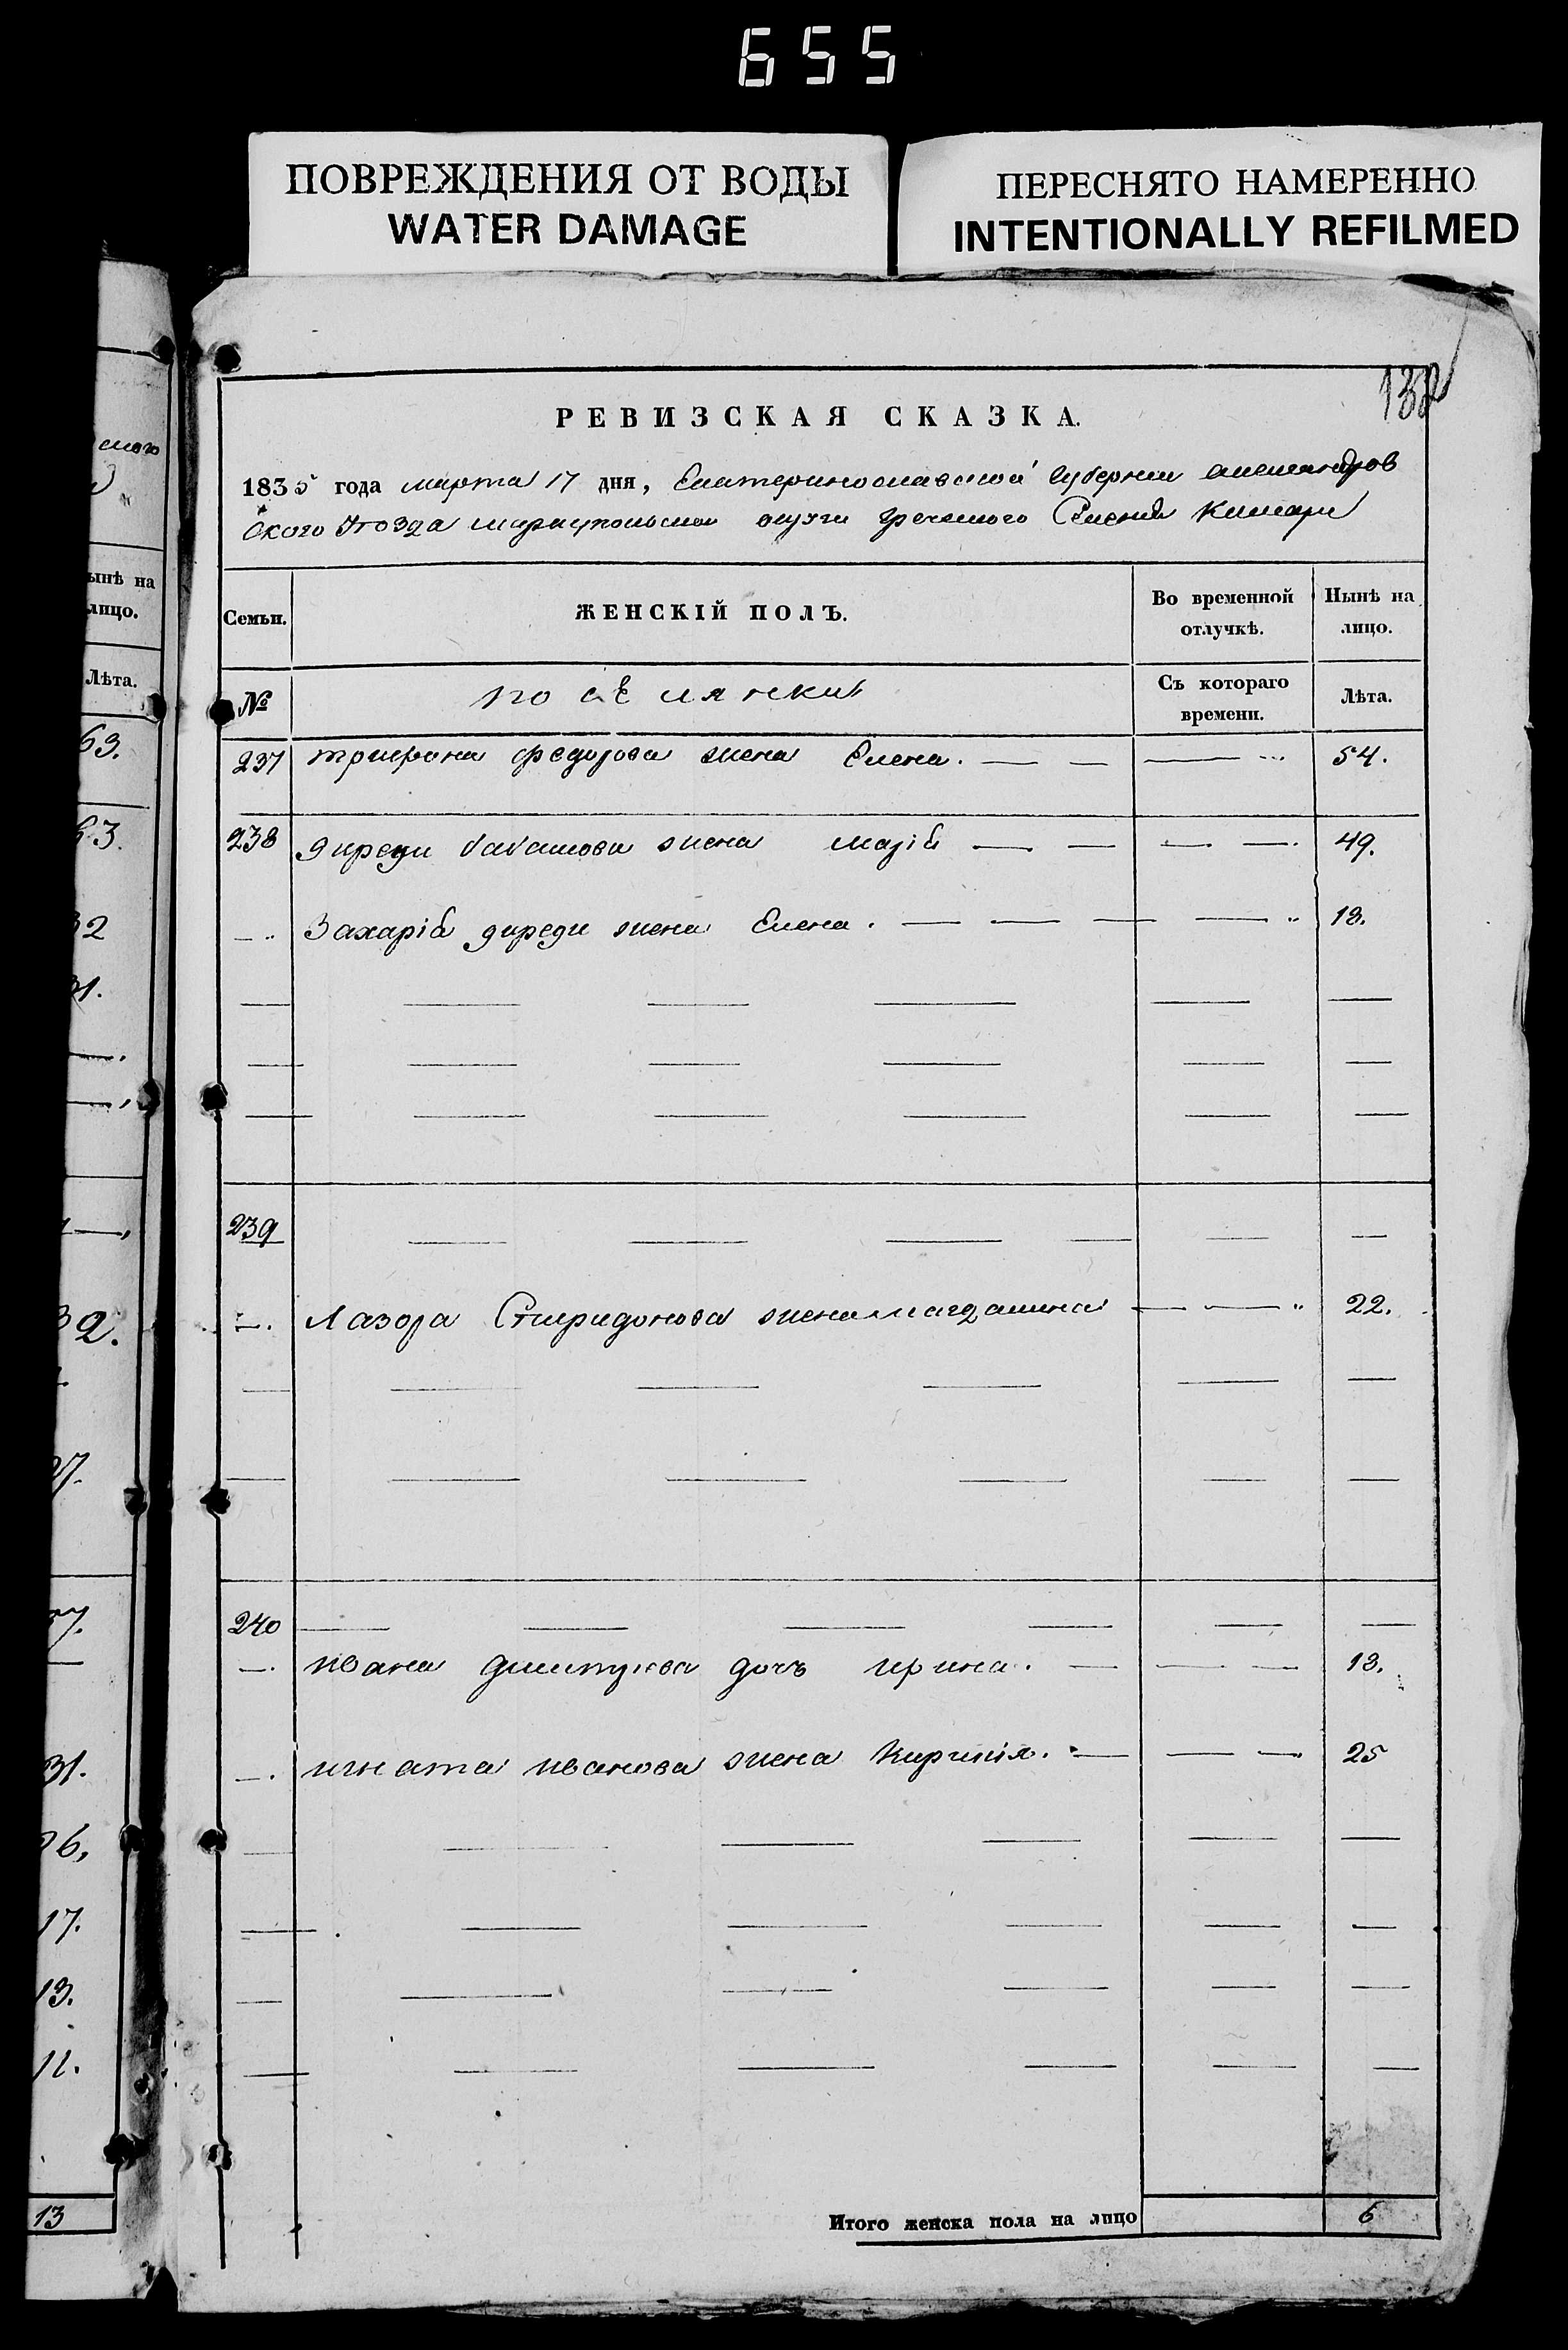 655
ПОВРЕЖДЕНИЯ ОТ ВОДЫ
WATER DAMAGE
ПЕРЕСНЯТО НАМЕРЕННО
INTENTIONALLY REFILMED
ского
ынѣ на
лицо.
Лѣта.
63.
32
31.
32.
27.
37.
31.
26,
17.
13.
11.
13
РЕВИЗСКАЯ СКАЗКА.
1835 года марта 17 дня, Екатеринославской Губернии александров
ского Уезда мариупольской округи Греческого Селения
Семьи. ЖЕНСКІЙ ПОЛЪ. Во временной отлучкѣ. Нынѣ на лицо.
№ поселянки Съ котораго времени. Лѣта.
237 трифона федорова жена Елена. — — — 54.
238 жена марія — — — — 49.
— Захарія жена Елена. — — — — 18.
239 — — — — — —
— Лазора Спиридонова жена магдалина — — 22.
240 — — — — — —
— ивана дмитриева дочь ирина. — — — 13.
— игната иванова жена Кирикія. — — — 25
Итого женска пола на лицо 6